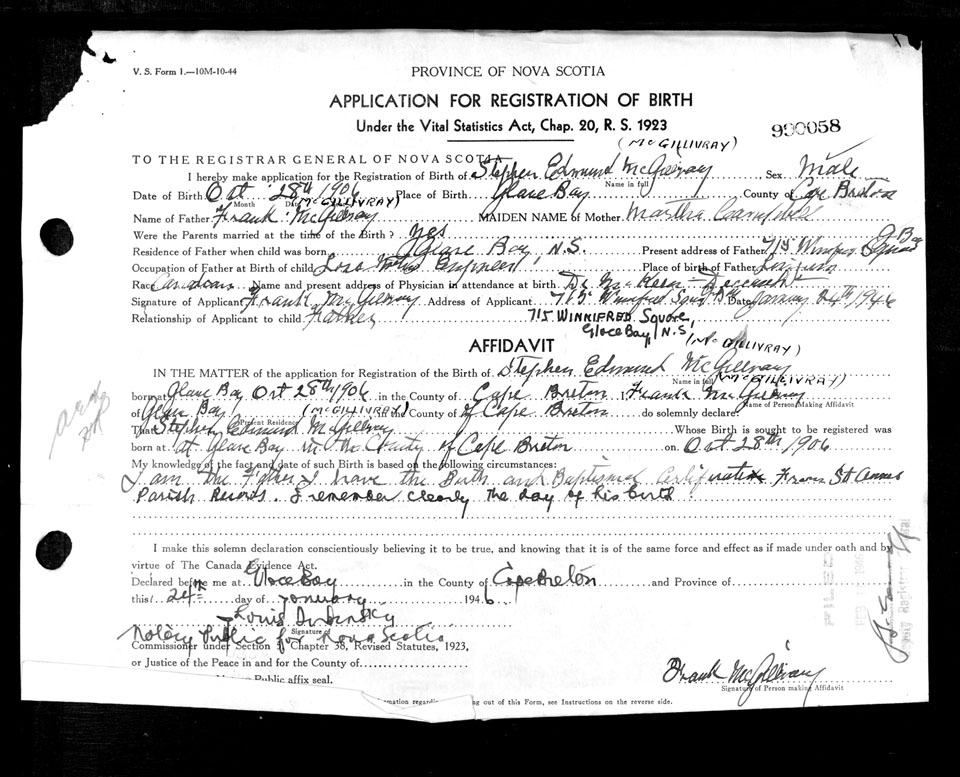 V. S. Form 1.—10M-10-44
PROVINCE OF NOVA SCOTIA
APPLICATION FOR REGISTRATION OF BIRTH
Under the Vital Statistics Act, Chap. 20, R. S. 1923
990058
(McGILLIVRAY)
TO THE REGISTRAR GENERAL OF NOVA SCOTIA
I hereby make application for the Registration of Birth of Stephen Edmund McGillvray Sex Male
Name in full
Date of Birth Oct 28th 1906 Place of Birth Glace Bay County of Cape Breton
Month Date
(McGILLIVRAY)
Name of Father Frank McGillvray MAIDEN NAME of Mother Martha Campbell
Were the Parents married at the time of the Birth? yes
Residence of Father when child was born Glace Bay, N.S. Present address of Father 715 Winnifred Square G Bay
Occupation of Father at Birth of child Engineer Place of birth of Father
Race Canadian Name and present address of Physician in attendance at birth. Dr McKeen - Deceased
Signature of Applicant Frank McGillvray Address of Applicant 715 Winnifred Square G Bay Date January 24th 1946
Relationship of Applicant to child Father 715 WINNIFRED Square,
Glace Bay, N.S.
(McGILLIVRAY)
AFFIDAVIT
IN THE MATTER of the application for Registration of the Birth of Stephen Edmund McGillvray
Name in full (McGILLIVRAY)
born at Glace Bay Oct 28th 1906 in the County of Cape Breton Frank McGillvray
Name of Person Making Affidavit
of Glace Bay (McGILLIVRAY) County of Cape Breton do solemnly declare
Present Residence
That Stephen Edmund McGillvray Whose Birth is sought to be registered was
born at At Glace Bay in the County of Cape Breton on Oct 28th 1906
My knowledge of the fact and date of such Birth is based on the following circumstances:
I am the Father I have the Birth and Baptismal Certificate From St Annes
Parish Records. I remember clearly the day of his birth.
I make this solemn declaration conscientiously believing it to be true, and knowing that it is of the same force and effect as if made under oath and by
virtue of The Canada Evidence Act.
Declared before me at Glace Bay in the County of Cape Breton and Province of
this 24th day of January 1946
Louis Dubinsky
Signature of
Notary Public for Nova Scotia
Commissioner under Section Chapter 38, Revised Statutes, 1923,
or Justice of the Peace in and for the County of
Public affix seal.
Frank McGillvray
Signature of Person making Affidavit
out of this Form, see Instructions on the reverse side.
FILED
Registrar